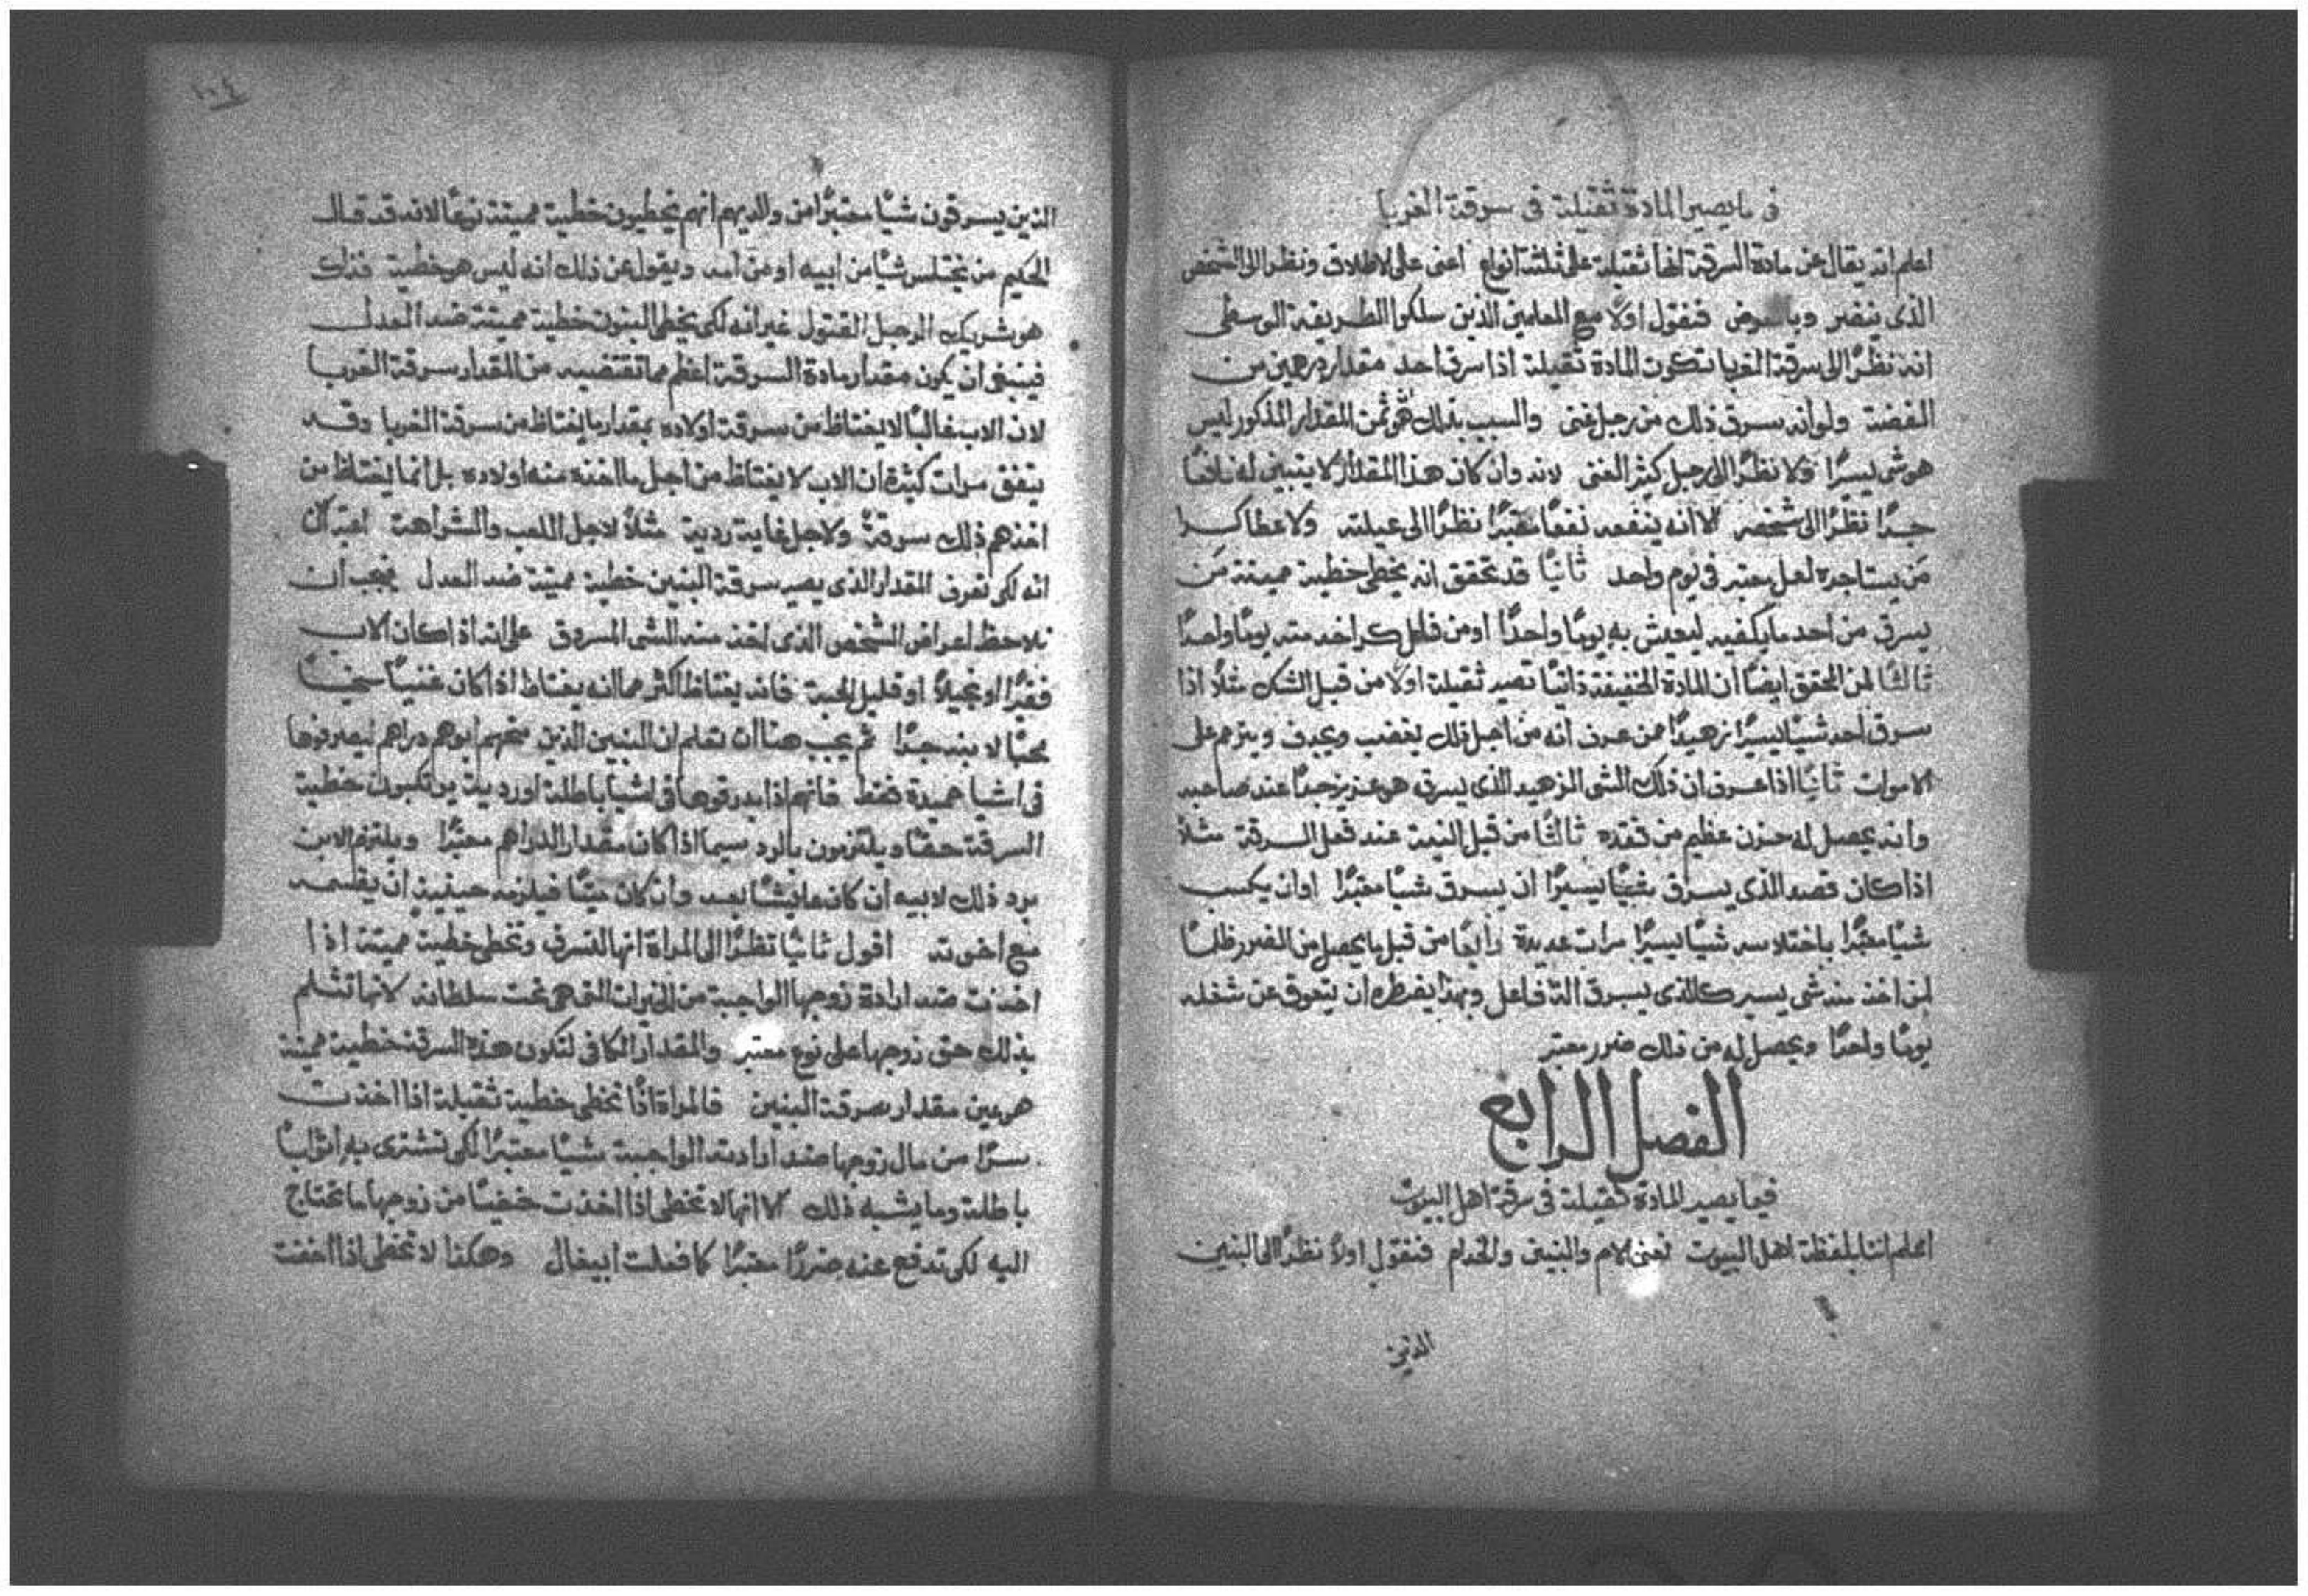 في ما يصير المادة ثقيلة في سرقة الغربا
اعلم انه يقال عن مادة السرقة انها ثقيلة على ثلثة انواع اعنى على الاطلاق ونظرا الى الشخص
الذى ينضر وبالعرض فنقول اولاً مع المعلمين الذين سلكوا الطريقة الوسطى
انه نظرًا الى سرقة الغربا تكون المادة ثقيلة اذا سرق احد مقدار درهمين من
الفضة ولو انه سرق ذلك من رجل غنى والسبب بذلك هو ثمن المقدار المذكور ليس
هو شى يسرًا ولا نظرًا الى رجل كثير الغنى لانه وان كان هذا المقدار لا يتبين له نافعًا
جدًا نظرًا الى شخصه الا انه ينفعه نفعًا معتبرًا نظرًا الى عيلته ولاعطا كرا
مَن يستاجره لعمل معتبر فى يوم واحد ثانيًا قد تحقق انه يخطى خطية مميتة مَن
يسرق من احد ما يكفيه ليعيش به يومًا واحدًا او من فاعل كرا خدمته يومًا واحدًا
ثالثًا لمن المحقق ايضًا ان المادة الخفيفة ذاتيًا تصير ثقيلة اولا من قبل الشك مثلاً اذا
سرق احد شيًا يسيرًا زهيدًا ممن عرف انه من اجل ذلك يغضب ويجدف ويترحم على
الاموات ثانيًا اذا عرف ان ذلك الشى الزهيد الذى يسرقه هو عزيز جدًا عند صاحبه
وانه يحصل له حزن عظيم من فقده ثالثًا من قبل النية عند فعل السرقة مثلاً
اذا كان قصد الذى يسرق شيًا يسيرًا ان يسرق شيًا معتبرًا او ان يكسب
شيًا معتبرًا باختلاسه شيًا يسيرًا مرات عديدة رابعًا من قبل ما يحصل من الضرر ظلمًا
لمن اخذ منه شى يسير كالذى يسرق الة فاعل وبهذا يضطره ان يتعوق عن شغله
يومًا واحدًا ويحصل له من ذلك ضرر معتبر
الفصل الرابع
فيما يصير المادة ثقيلة فى سرقة اهل البيوت
اعلم اننا بلفظة اهل البيوت نعنى الام والبنين والخدام فنقول اولاً نظرًا الى البنين
الذين
١٠٤
الذين يسرقون شيًا معتبرًا من والديهم انهم يخطيون خطية مميتة نوعًا لانه قد قال
الحكيم من يختلس شيًا من ابيه او من امه ويقول عن ذلك انه ليس هو خطية فذاك
هو شريك الرجل القتول غير انه لكى يخطى البنون خطية مميتة ضد العدل
فينبغى ان يكون مقدار مادة السرقة اعظم مما تقتضيه من المقدار سرقة الغربا
لان الاب غالبًا لا يغتاظ من سرقة اولاده بمقدار ما يغتاظ من سرقة الغربا وقد
يتفق مرات كثيرة ان الاب لا يغتاظ من اجل ما اخذه منه اولاده بل انما يغتاظ من
اخذهم ذلك سرقةً ولاجل غاية ردية مثلاً لاجل اللعب والشراهة
انه لكى نعرف المقدار الذى يصير سرقة البنين خطية مميتة ضد العدل فيجب ان
نلاحظ اعراض الشخص الذى اخذ منه الشى المسروق على انه اذا كان الاب
فقيرًا او بخيلاً او قليل المحبة فانه يغتاظ اكثر مما انه يغتاظ اذا كان غنيًا سخيًا
محبًا لابنه جدًا ثم يجب هنا ان تعلم ان البنين الذين منحهم ابوهم دراهم ليصرفوها
فى اشيا حميدة فقط فانهم اذا بدرقوها فى اشيا باطلة او ردية يرتكبون خطية
السرقة حقًا ويلتزمون بالرد سيما اذا كان مقدار الدراهم معتبرًا ويلتزم الابن
برد ذلك لابيه ان كان عايشًا بعد وان كان ميتًا فيلزمه حينيذٍ ان يقسمه
مع اخوته اقول ثانيًا نظرًا الى المراة انها لتسرق وتخطى خطية مميتة اذا
اخذت ضد ارادة زوجها الواجبة من الخيرات التى هى تحت سلطانه لانها تثلم
بذلك حق زوجها على نوع معتبر والمقدار الكافى لتكون هذه السرقة خطية مميتة
هو عين مقدار سرقة البنين فالمراة اذًا تخطى خطية ثقيلة اذا اخذت
سرًا من مال زوجها ضد ارادته الواجبة شيًا معتبرًا لكى تشترى به اثوابًا
باطلة وما يشبه ذلك الا انها لا تخطى اذا اخذت خفيًا من زوجها ما تحتاج
اليه لكى تدفع عنه ضررًا معتبرًا كما فعلت ابيغال وهكذا لا تخطى اذا اخفت